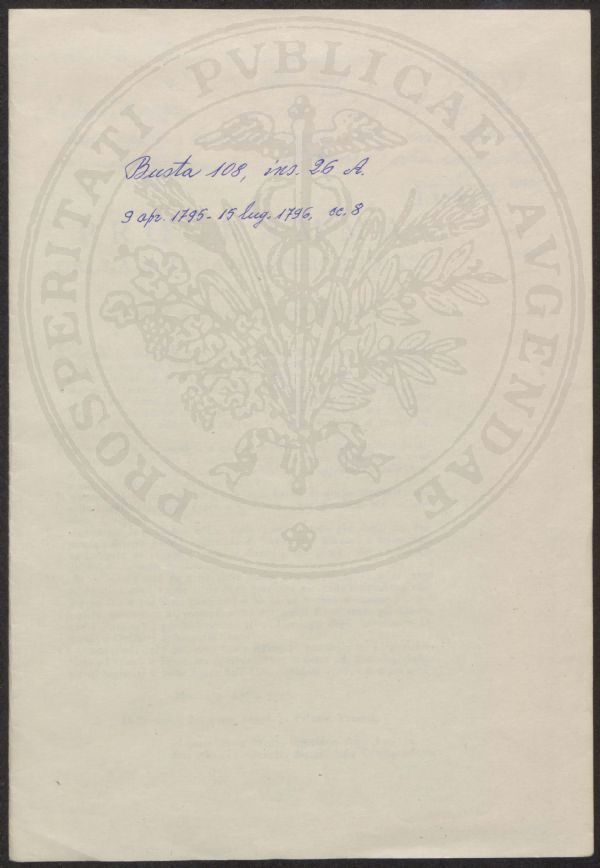 PROSPERITATI PVBLICAE AVGENDAE
Busta 108, ins. 26 A.
9 apr. 1795 - 15 lug. 1796, cc. 8